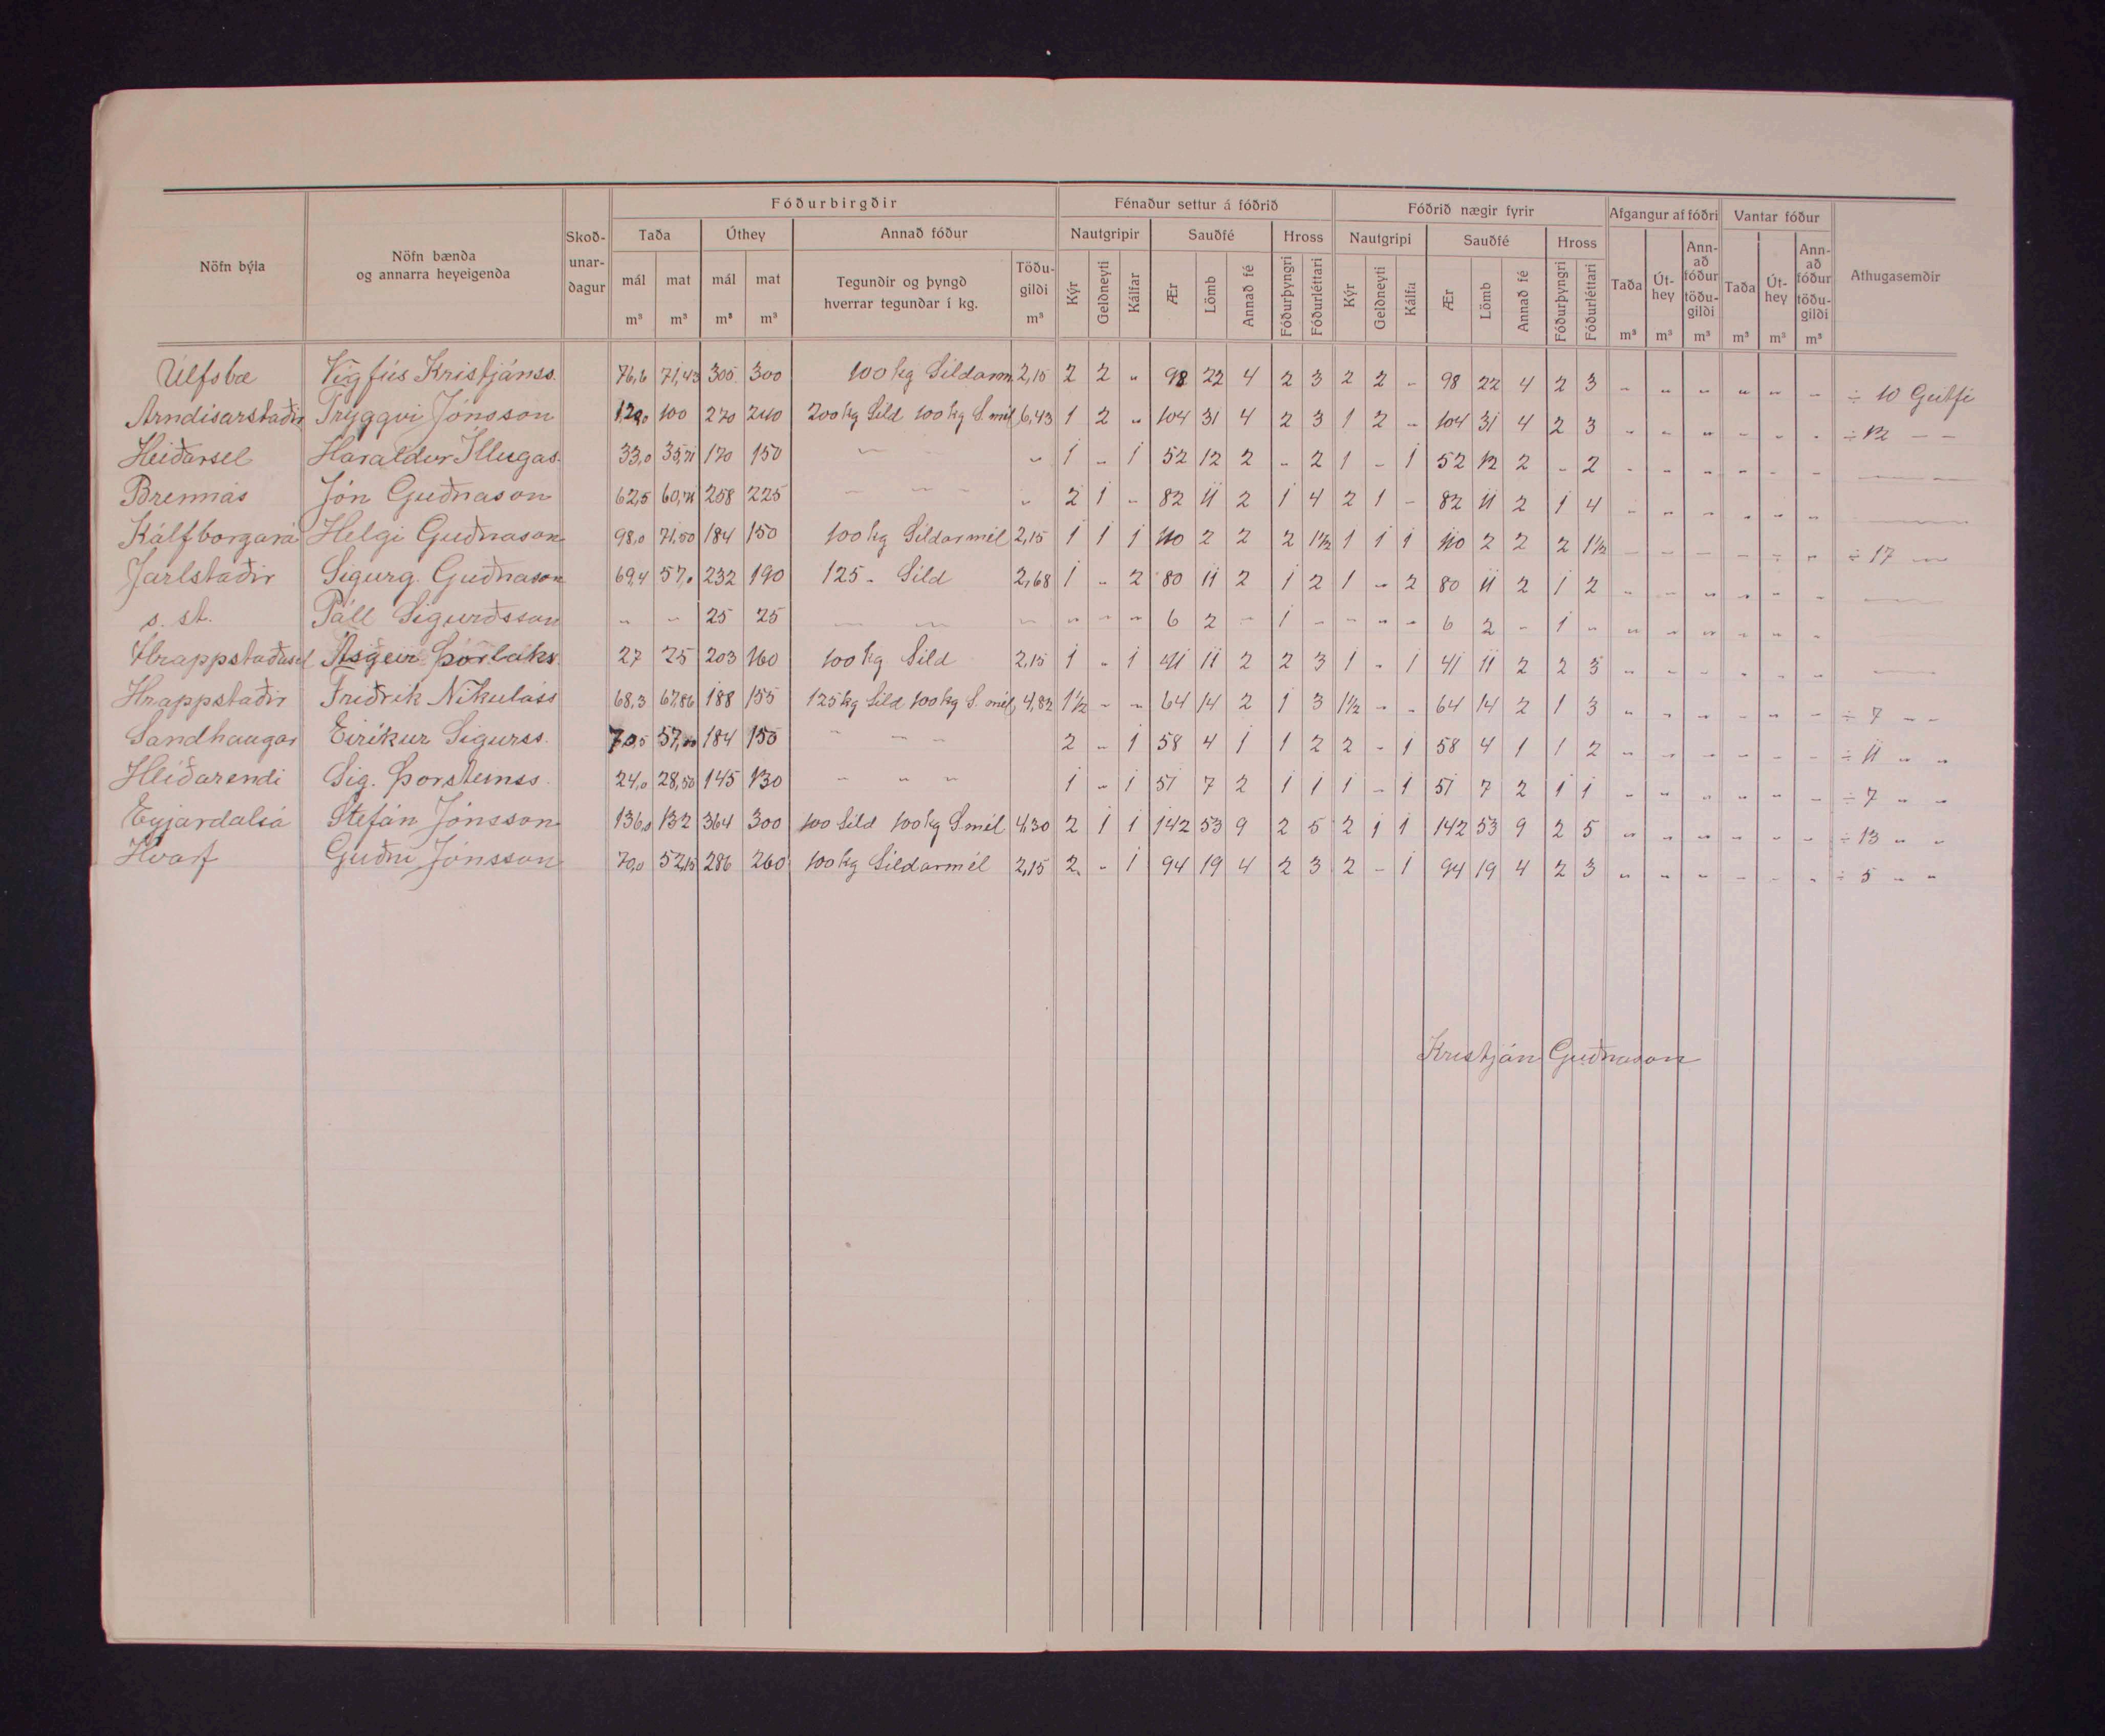 Nöfn býla
Nöfn bænda
og annarra heyeigenda
Skoð-
unar-
dagur
Fóðurbirgðir
Fénaður settur á fóðrið
Fóðrið nægir fyrir
Afgangur af fóðri
Vantar fóður
Athugasemdir
Taða
Úthey
Annað fóður
Nautgripir
Sauðfé
Hross
Nautgripi
Sauðfé
Hross
mál m³
mat m³
mál m³
mat m³
Tegundir og þyngd
hverrar tegundar í kg.
Töðu-
gildi
m³
Kýr
Geldneyti
Kálfar
Ær
Lömb
Annað fé
Fóðurþyngri
Fóðurléttari
Kýr
Geldneyti
Kálfa
Ær
Lömb
Annað fé
Fóðurþyngri
Fóðurléttari
Taða m³
Út-
hey m³
Ann-
að
fóður
töðu-
gildi
m³
Taða m³
Út-
hey m³
Ann-
að
fóður
töðu-
gildi
m³
Úlfsbæ Vigfús Kristjánss. 76,6 71,43 305 300 100 kg Síldarm. 2,15 2 2 " 98 22 4 2 3 2 2 - 98 22 4 2 3 - " " " " - ÷ 10
Arndísarstaðir Tryggvi Jónsson 120,0 100 270 240 200 kg Síld 100 kg S. mél 6,43 1 2 " 104 31 4 2 3 1 2 - 104 31 4 2 3 " " " - - - ÷ 12 - -
Heiðarsel Haraldur Illugas. 33,0 35,71 170 150 - - - " 1 - 1 52 12 2 - 2 1 - 1 52 12 2 - 2 - - " - - -
Brennás Jón Guðnason 62,5 60,71 258 225 - - - " 2 1 - 82 11 2 1 4 2 1 - 82 11 2 1 4 - - - " - "
Kálfborgará Helgi Guðnason 98,0 71,50 184 150 100 kg Síldarmél 2,15 1 1 1 110 2 2 2 1½ 1 1 1 110 2 2 2 1½ - - - - - - ÷ 17 -
Jarlstaðir Sigurg. Guðnason 69,4 57,0 232 190 125 - Síld 2,68 1 - 2 80 11 2 1 2 1 - 2 80 11 2 1 2 - - " " - -
s. st. Páll Sigurðsson " - 25 25 - - - - - - 6 2 - 1 - - - - 6 2 - 1 - " - " - " -
Hrappstaðasel Ásgeir Þorláks. 27 25 203 160 100 kg Síld 2,15 1 - 1 41 11 2 2 3 1 - 1 41 11 2 2 3 " " - - - -
Hrappstaðir Friðrik Nikuláss 68,3 67,86 188 155 125 kg Síld 100 kg S. mél, 4,82 1½ - - 64 14 2 1 3 1½ - - 64 14 2 1 3 " - - - - - ÷ 7 - -
Sandhaugar Eiríkur Sigurss. 70,5 57,00 184 150 - - - 2 - 1 58 4 1 1 2 2 - 1 58 4 1 1 2 " - - - - - ÷ 11 " "
Heiðarendi Sig. Þorsteinss. 24,0 28,50 145 130 - - - 1 - 1 51 7 2 1 1 1 - 1 51 7 2 1 1 " " - - " - ÷ 7 " "
Eyjardalsá Stefán Jónsson 136,0 132 364 300 100 Síld 100 kg Smél 4,30 2 1 1 142 53 9 2 5 2 1 1 142 53 9 2 5 " " - - - - ÷ 13 " "
Hvarf Guðni Jónsson 70,0 52,15 286 260 100 kg Síldarmél 2,15 2 - 1 94 19 4 2 3 2 - 1 94 19 4 2 3 " " " - - - ÷ 5 " "
Kristján Guðnason